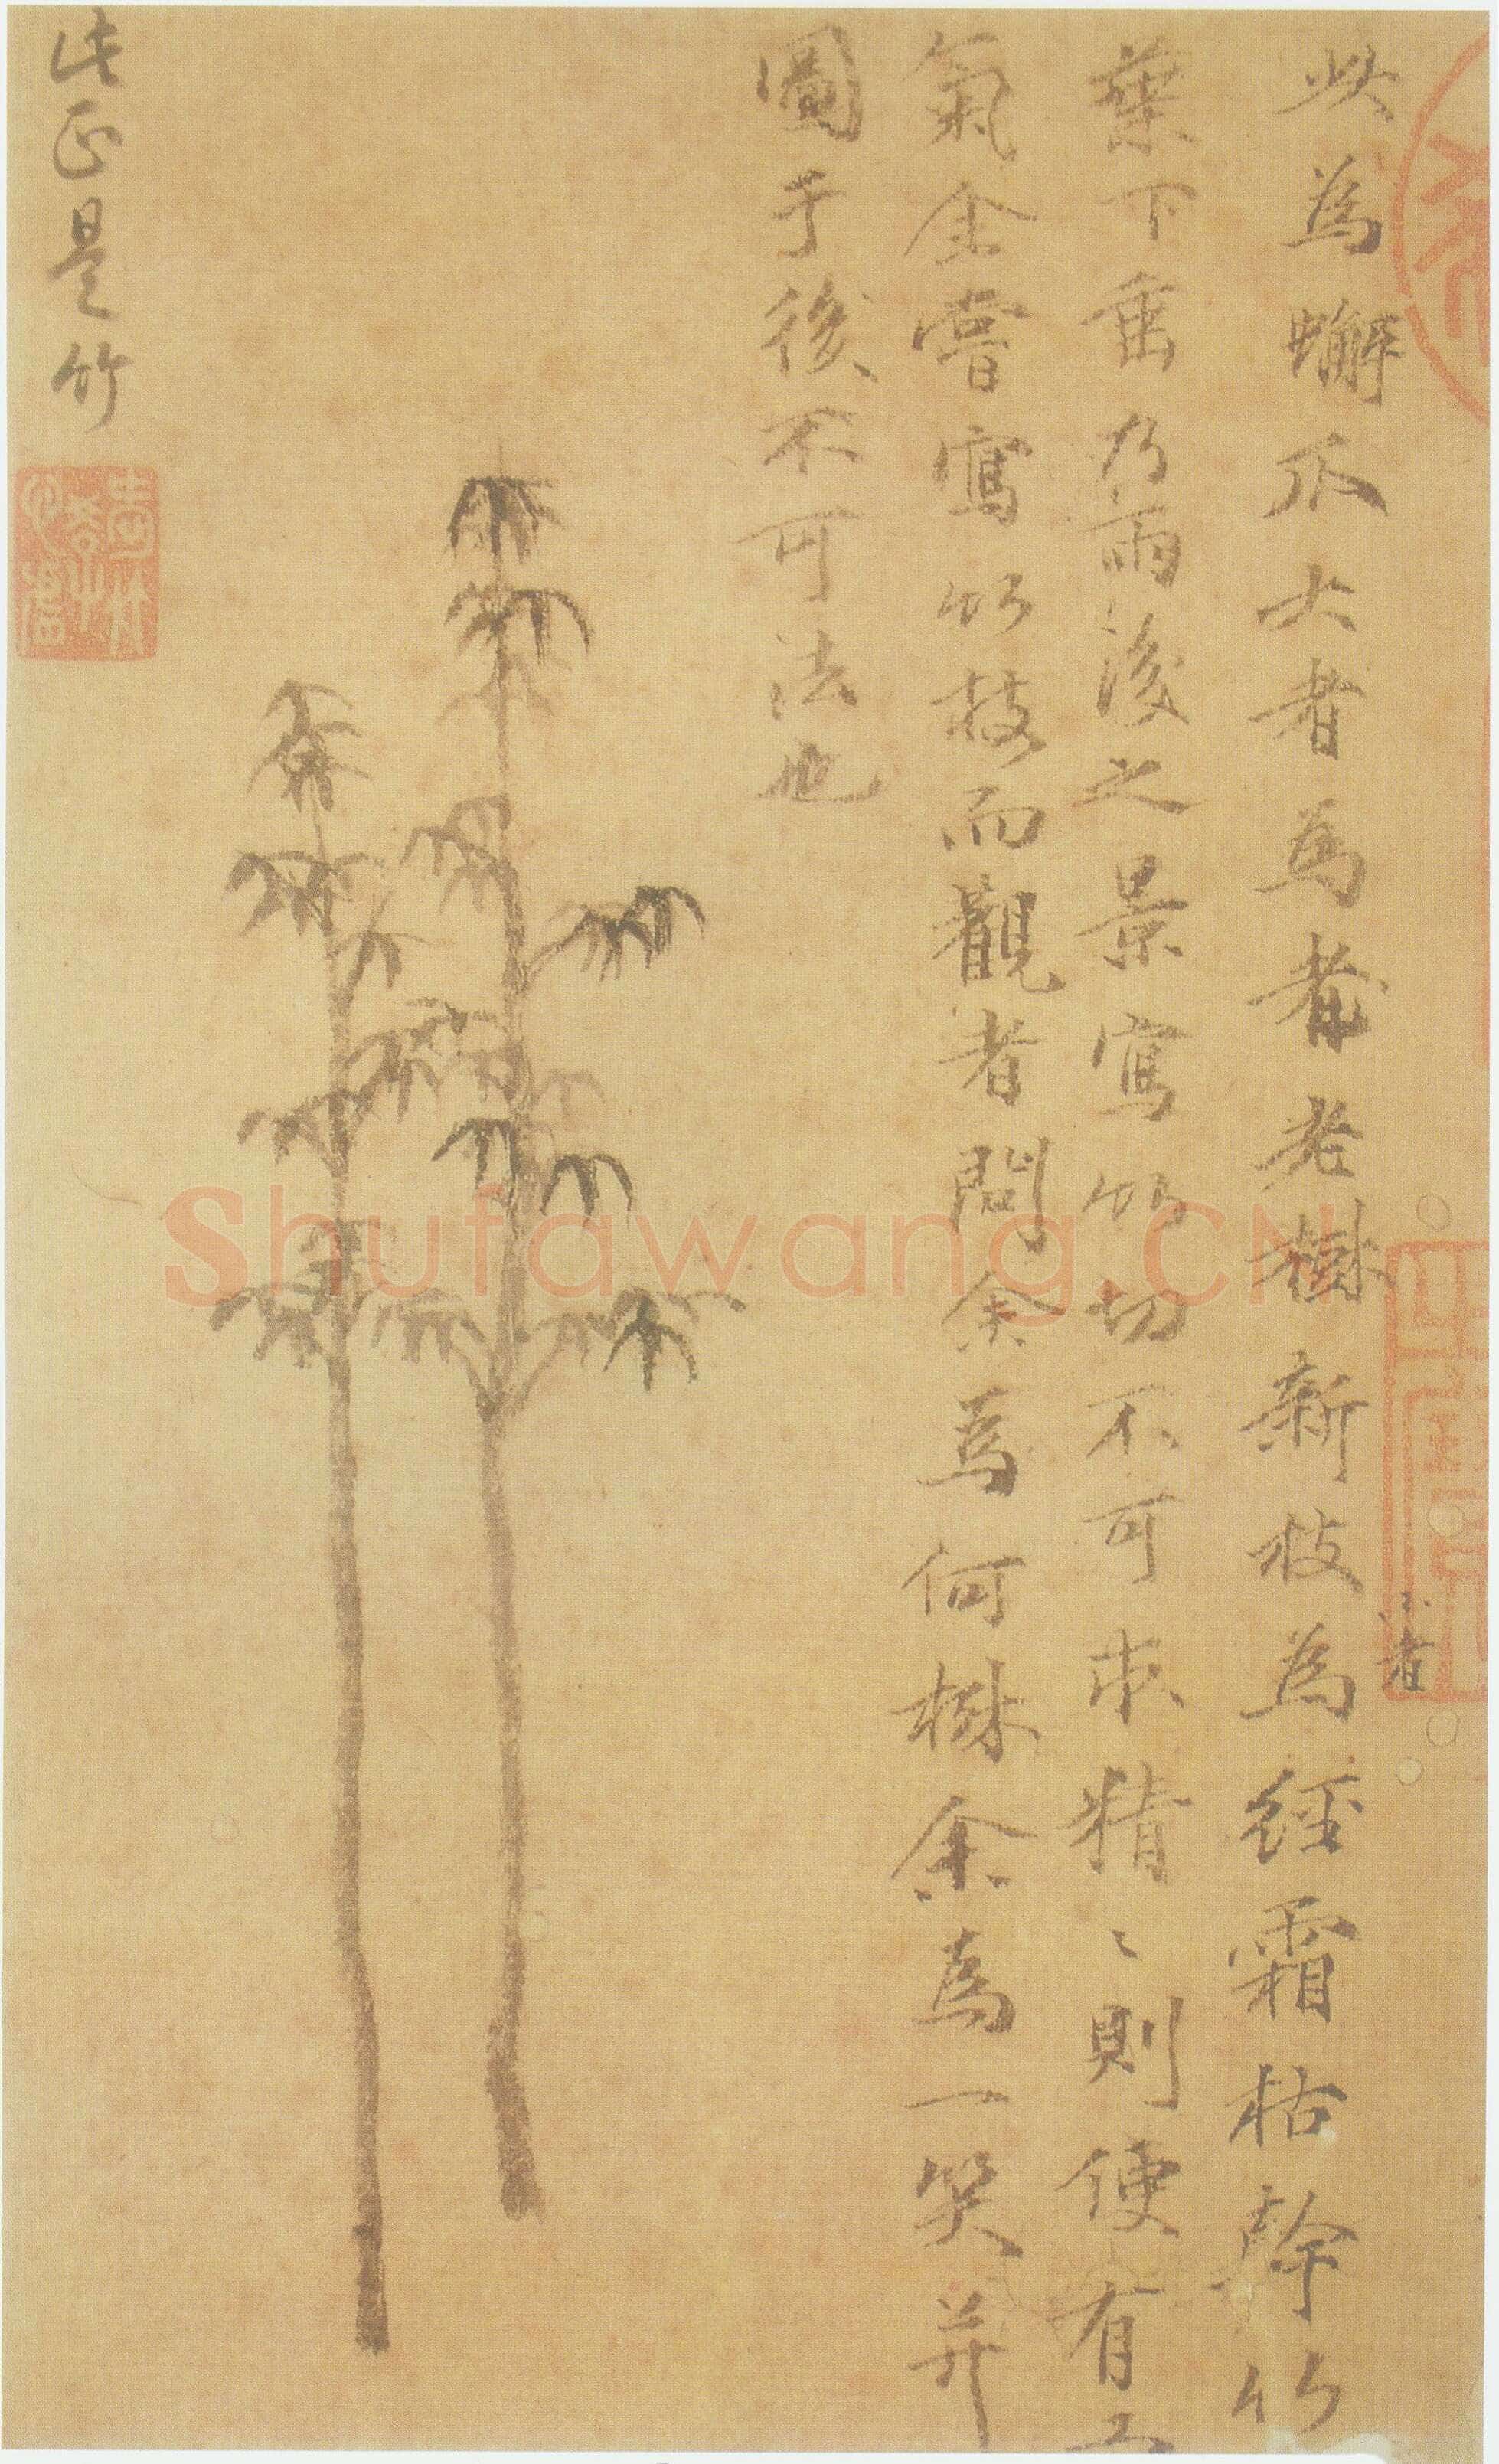 此為蠏爪大者為者老樹新枝為經霜枯幹竹
小者
葉下垂乃雨後之景寫竹切不可求精〻則便有工
氣余嘗寫竹枝而觀者問余為何樹余為一笑并
圖于後不可法也
此正是竹
Shufawang.CN